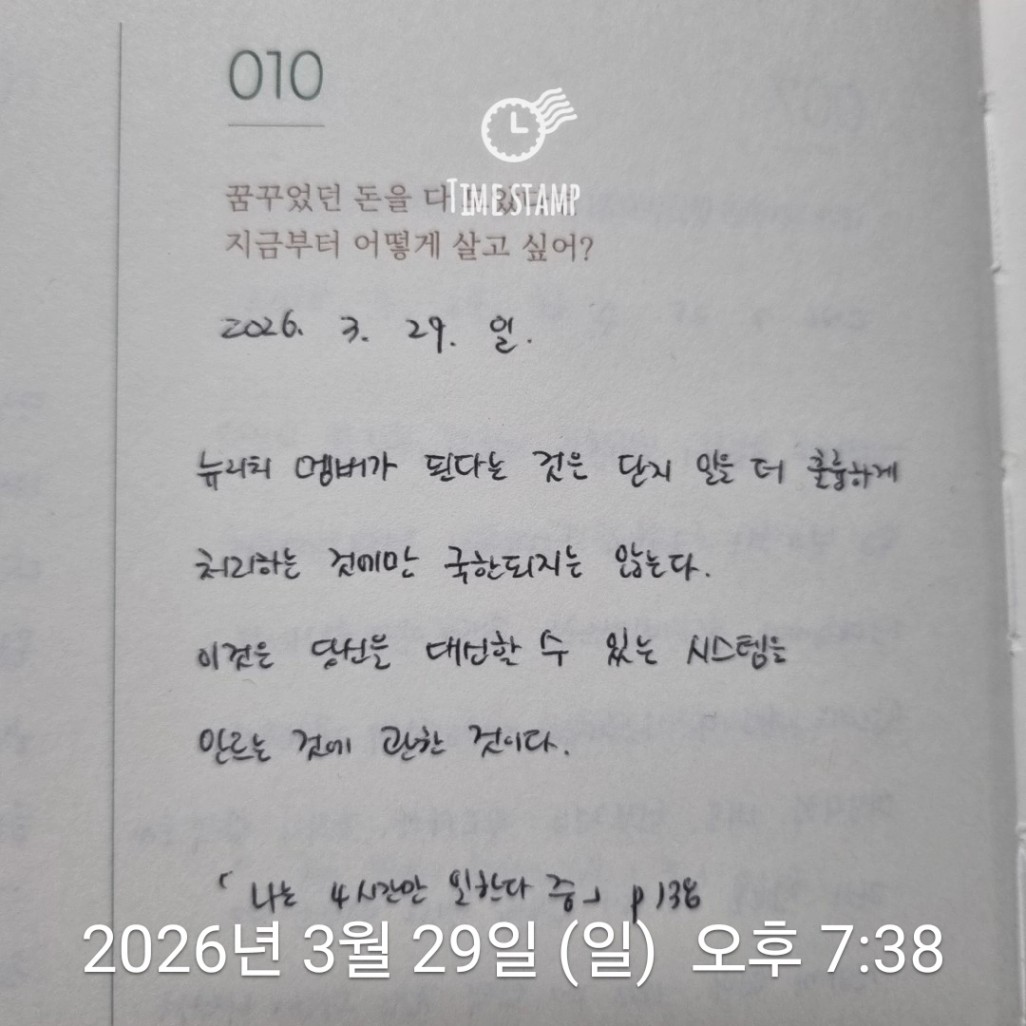 010
TIMESTAMP
꿈꾸었던 돈을 다
지금부터 어떻게 살고 싶어?
2026. 3. 29. 일.
뉴리치 멤버가 된다는 것은 단지 일을 더 훌륭하게
처리하는 것에만 국한되지는 않는다.
이것은 당신을 대신할 수 있는 시스템을
만드는 것에 관한 것이다.
「나는 4시간만 일한다 중」 p138
2026년 3월 29일 (일) 오후 7:38